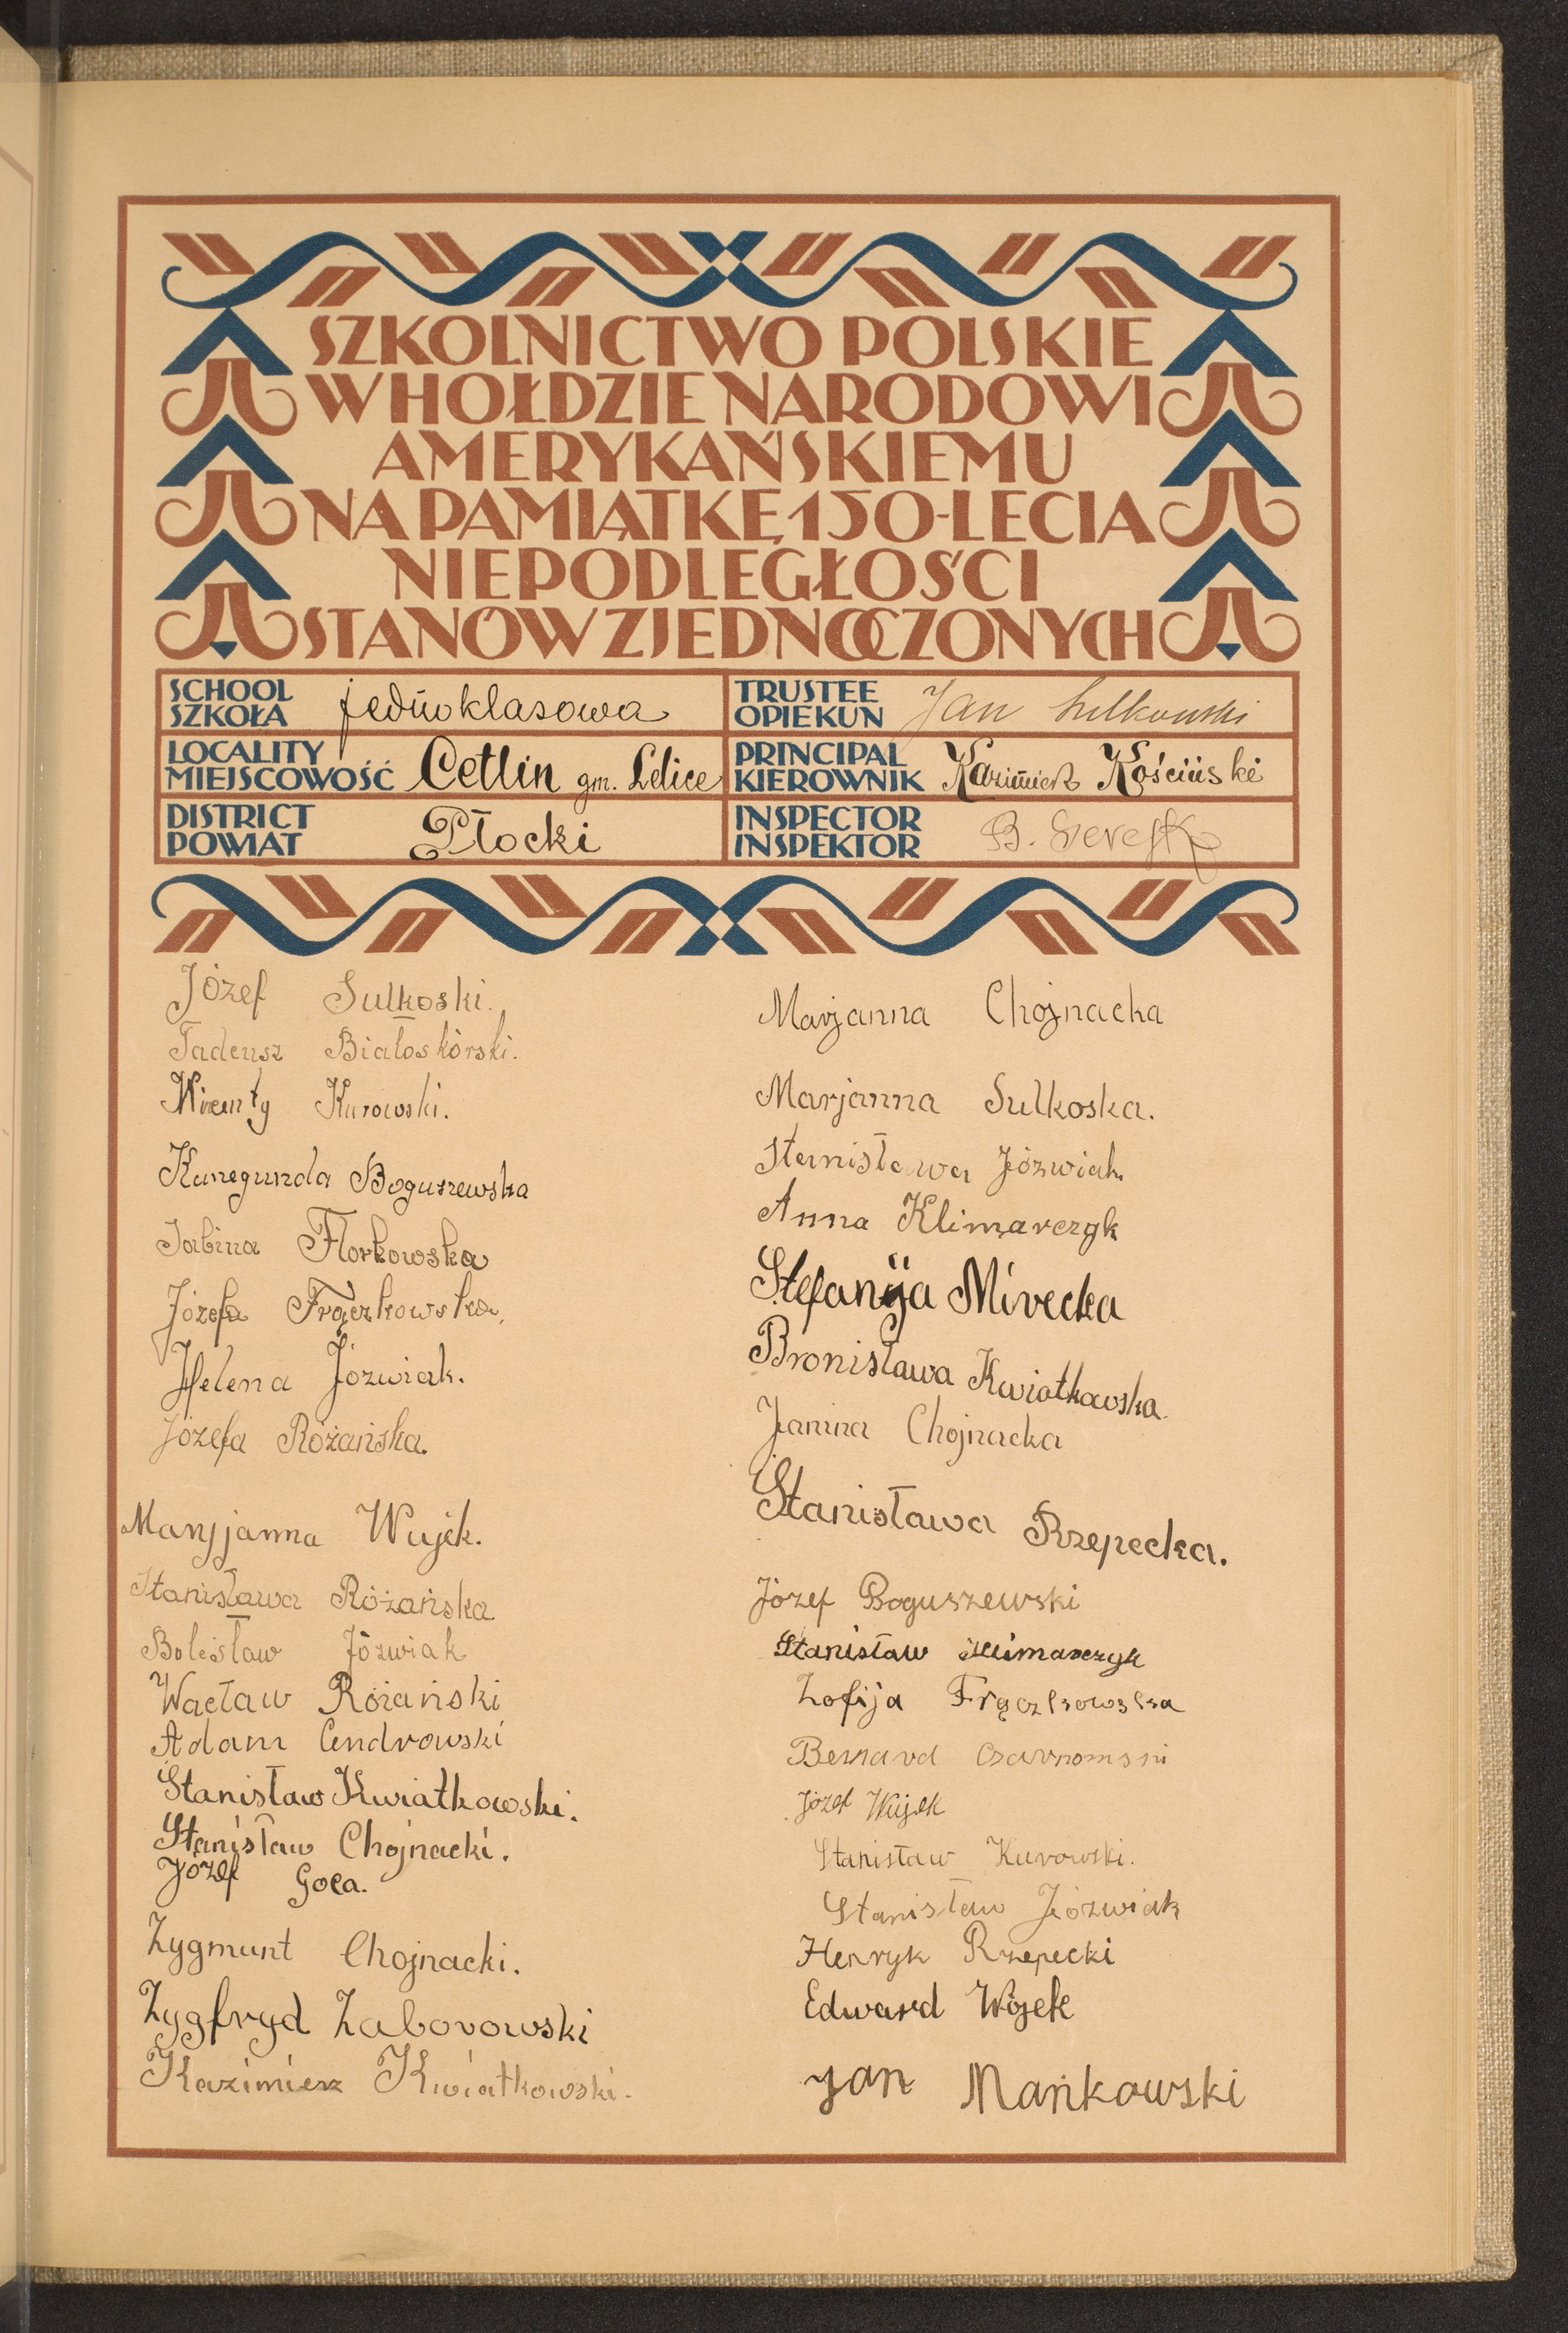 SZKOLNICTWO POLSKIE
W HOŁDZIE NARODOWI
AMERYKAŃSKIEMU
NA PAMIĄTKĘ 150-LECIA
NIEPODLEGŁOŚCI
STANÓW ZJEDNOCZONYCH
SCHOOL
SZKOŁA
jednoklasowa
TRUSTEE
OPIEKUN
Jan Sulkowski
LOCALITY
MIEJSCOWOŚĆ
Cetlin gm. Lelice
PRINCIPAL
KIEROWNIK
Kazimierz Kościński
DISTRICT
POWIAT
Płocki
INSPECTOR
INSPEKTOR
B.
Józef Sulkoski.
Tadeusz Białoskórski.
Kurowski.
Kunegunda Boguszewska
Sabina Florkowska
Józefa Frączkowska,
Helena Józwiak.
Józefa Różańska.
Maryjanna Wujek.
Stanisława Różańska
Bolesław Józwiak
Wacław Różański
Adam Cendrowski
Stanisław Kwiatkowski.
Stanisław Chojnacki.
Józef Goca.
Zygmunt Chojnacki.
Zygfryd Zaborowski
Kazimierz Kwiatkowski.
Marjanna Chojnacka
Marjanna Sulkoska.
Stanisława Józwiak
Anna Klimarczyk
Stefanija Mirecka
Bronisława Kwiatkowska.
Janina Chojnacka
Stanisława Rzepecka.
Józef Boguszewski
Stanisław Klimarczyk
Zofija Frączkowska
Bernard
Józef Wujek
Stanisław Kurowski.
Stanisław Józwiak
Henryk Rzepecki
Edward Wojek
Jan Mańkowski